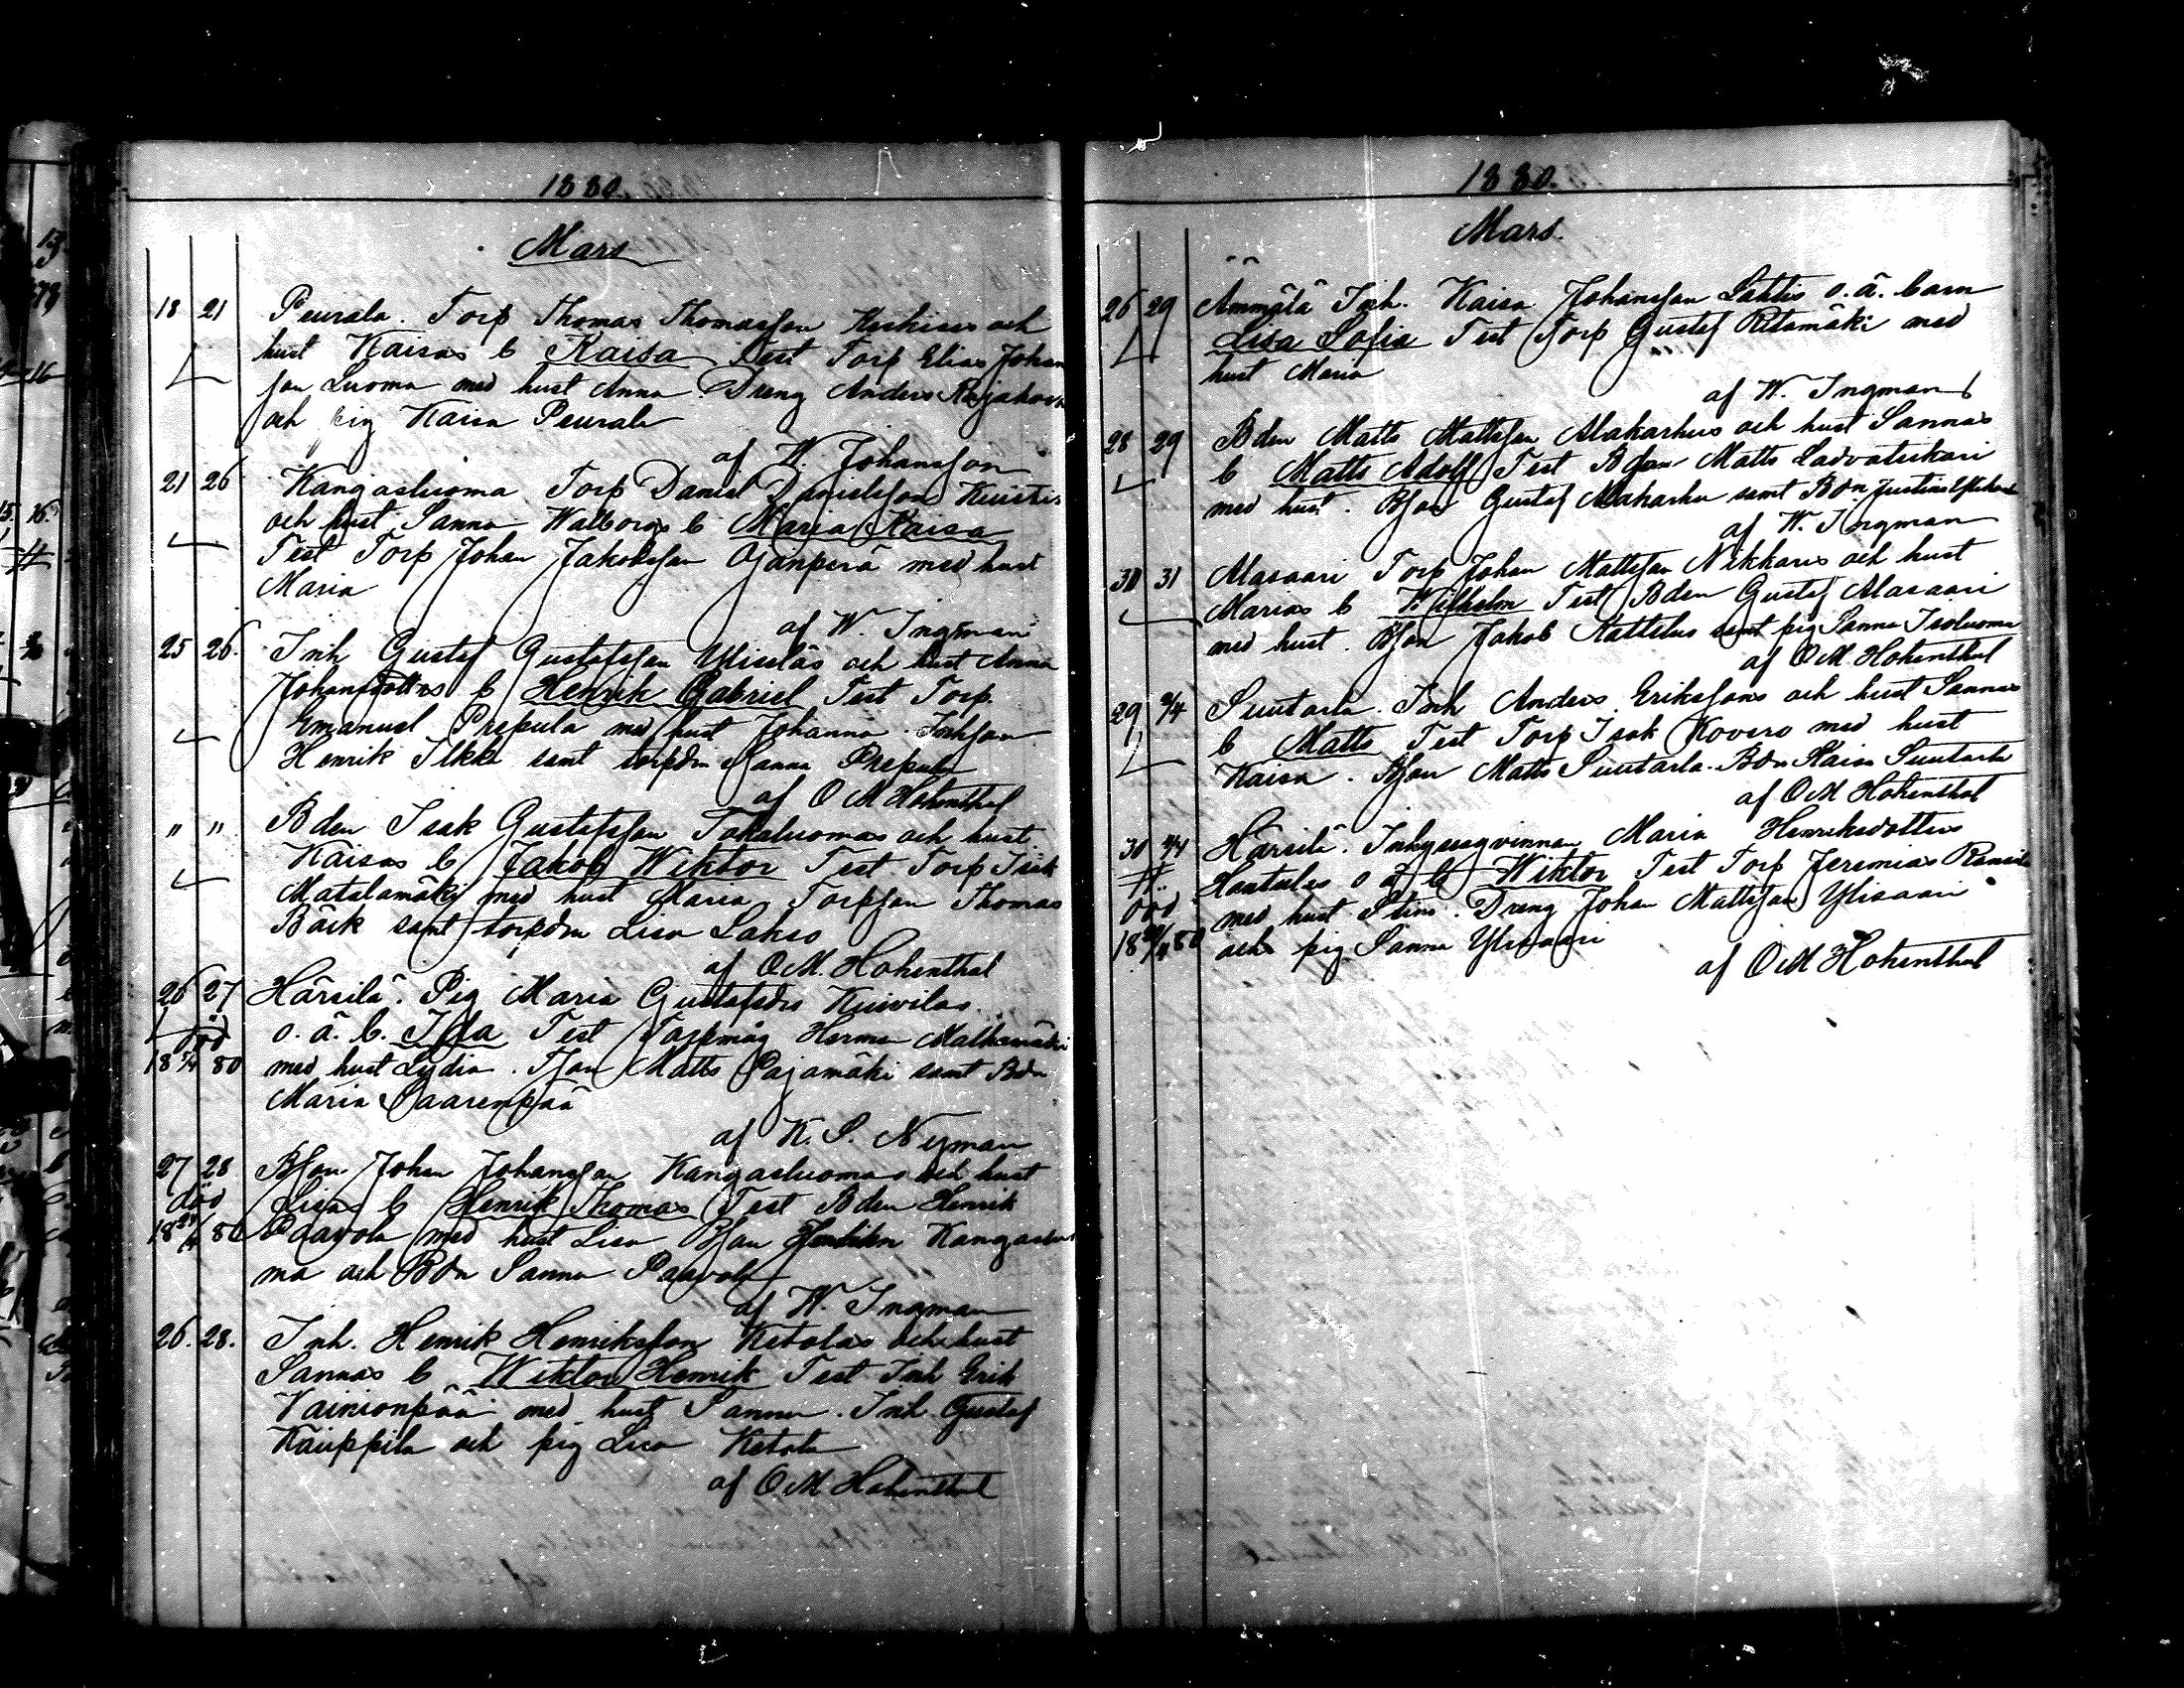 1880.
Mars
18 21 Peurala. Torp Thomas Thomasson och
hust Kaisas b Kaisa Test Torp Elias Johan
son Luoma med hust Anna Dreng Anders
och pig Kaisa Peurala
af W. Johansson
21 26 Kangasluoma Torp Daniel Danielsson
och hust Sanna Walborgs b Maria Kaisa
Test Torp Johan Jakobsson Ojanperä med hust
Maria
af W. Ingman
25 26. Inh Gustaf Gustafsson och hust Anna
Johansdotters b Henrik Gabriel Test Torp
Emanuel Prepula med hust Johanna. Inhson
Henrik Ilkka samt torpdn Sanna Prepula
af O M Hohenthal
" " Bden Isak Gustafsson Tokaluomas och hust
Kaisas b Jakob Wiktor Test Torp Isak
Matalamäki med hust Maria Torpson Thomas
Bäck samt torpdn Lisa Lahso
af O.M. Hohenthal
26 27 Härsilä. Pig Maria Gustafsdrs Kuivilas
död o. ä. b. Ida Test Torpmåg Herman
18 80 med hust Lydia. Tson Matts Pajamäki samt Bdn
Maria Saarenpää
af K. S. Nyman
27 28 Bson Johan Johansson Kangasluomas och hust
död Lisas b Henrik Thomas Test Bden Henrik
18 80 Paavola med hust Lisa Bson Kangasluo
ma och Bdn Sanna Paavola
af W. Ingman
26. 28. Inh. Henrik Henriksson Ketolas och hust
Sannas b Wiktor Henrik Test Inh Erik
Vainionpää med hust Sanna. Inh. Gustaf
Kauppila och pig Lisa Ketola
af O M Hohenthal
1880.
Mars.
26 29 Ämmälä Inh. Kaisa Johansson Lahtis o. ä. barn
Lisa Sofia Test Torp Gustaf Ritamäki med
hust Maria
af W. Ingman
28 29 Bden Matts Mattsson Alakarhus och hust Sannas
b Matts Adolf Test Bson Matts
med hust. Bson Gustaf Alakarhu samt Bdn Justina
af W. Ingman
30 31 Alasaari Torp Johan Mattsson och hust
Marias b Wilhelm Test Bden Gustaf Alasaari
med hust. Bson Jakob samt pig Sanna Isoluoma
af O M Hohenthal
29 Suutarla. Inh Anders Erikssons och hust Sannas
b Matts Test Torp Isak Kovero med hust
Kaisa. Bson Matts Suutarla. Bdn Kaisa Suutarla
af O M Hohenthal
30 Härsilä. Inhysesqvinnan Maria Henriksdotters
o ä b Wiktor Test Torp Jeremias
död med hust Stina. Dreng Johan Mattsson Ylisaari
18 80 och pig Sanna Ylisaari
af O M Hohenthal